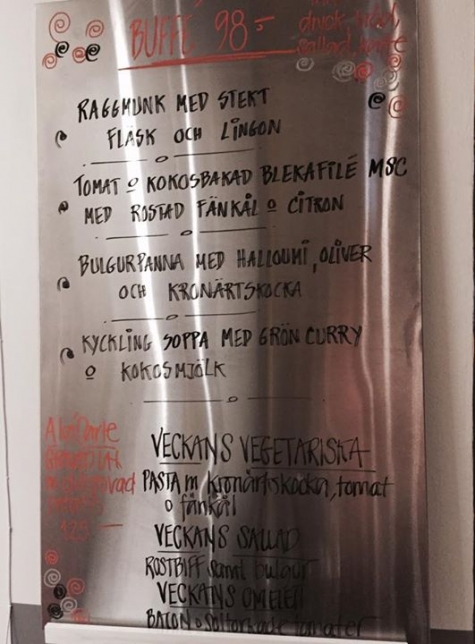 BUFFÉ 98:-
dryck, bröd,
sallad, kaffe
RAGGMUNK MED STEKT
FLÄSK OCH LINGON
TOMAT o KOKOSBAKAD BLEKAFILÉ MSC
MED ROSTAD FÄNKÅL o CITRON
BULGURPANNA MED HALLOUMI, OLIVER
OCH KRONÄRTSKOCKA
KYCKLING SOPPA MED GRÖN CURRY
o KOKOSMJÖLK
A la Carte
125:-
VECKANS VEGETARISKA
PASTA m kronärtskocka, tomat
o fänkål
VECKANS SALLAD
ROSTBIFF samt bulgur
VECKANS OMELETT
BACON o soltorkade tomater